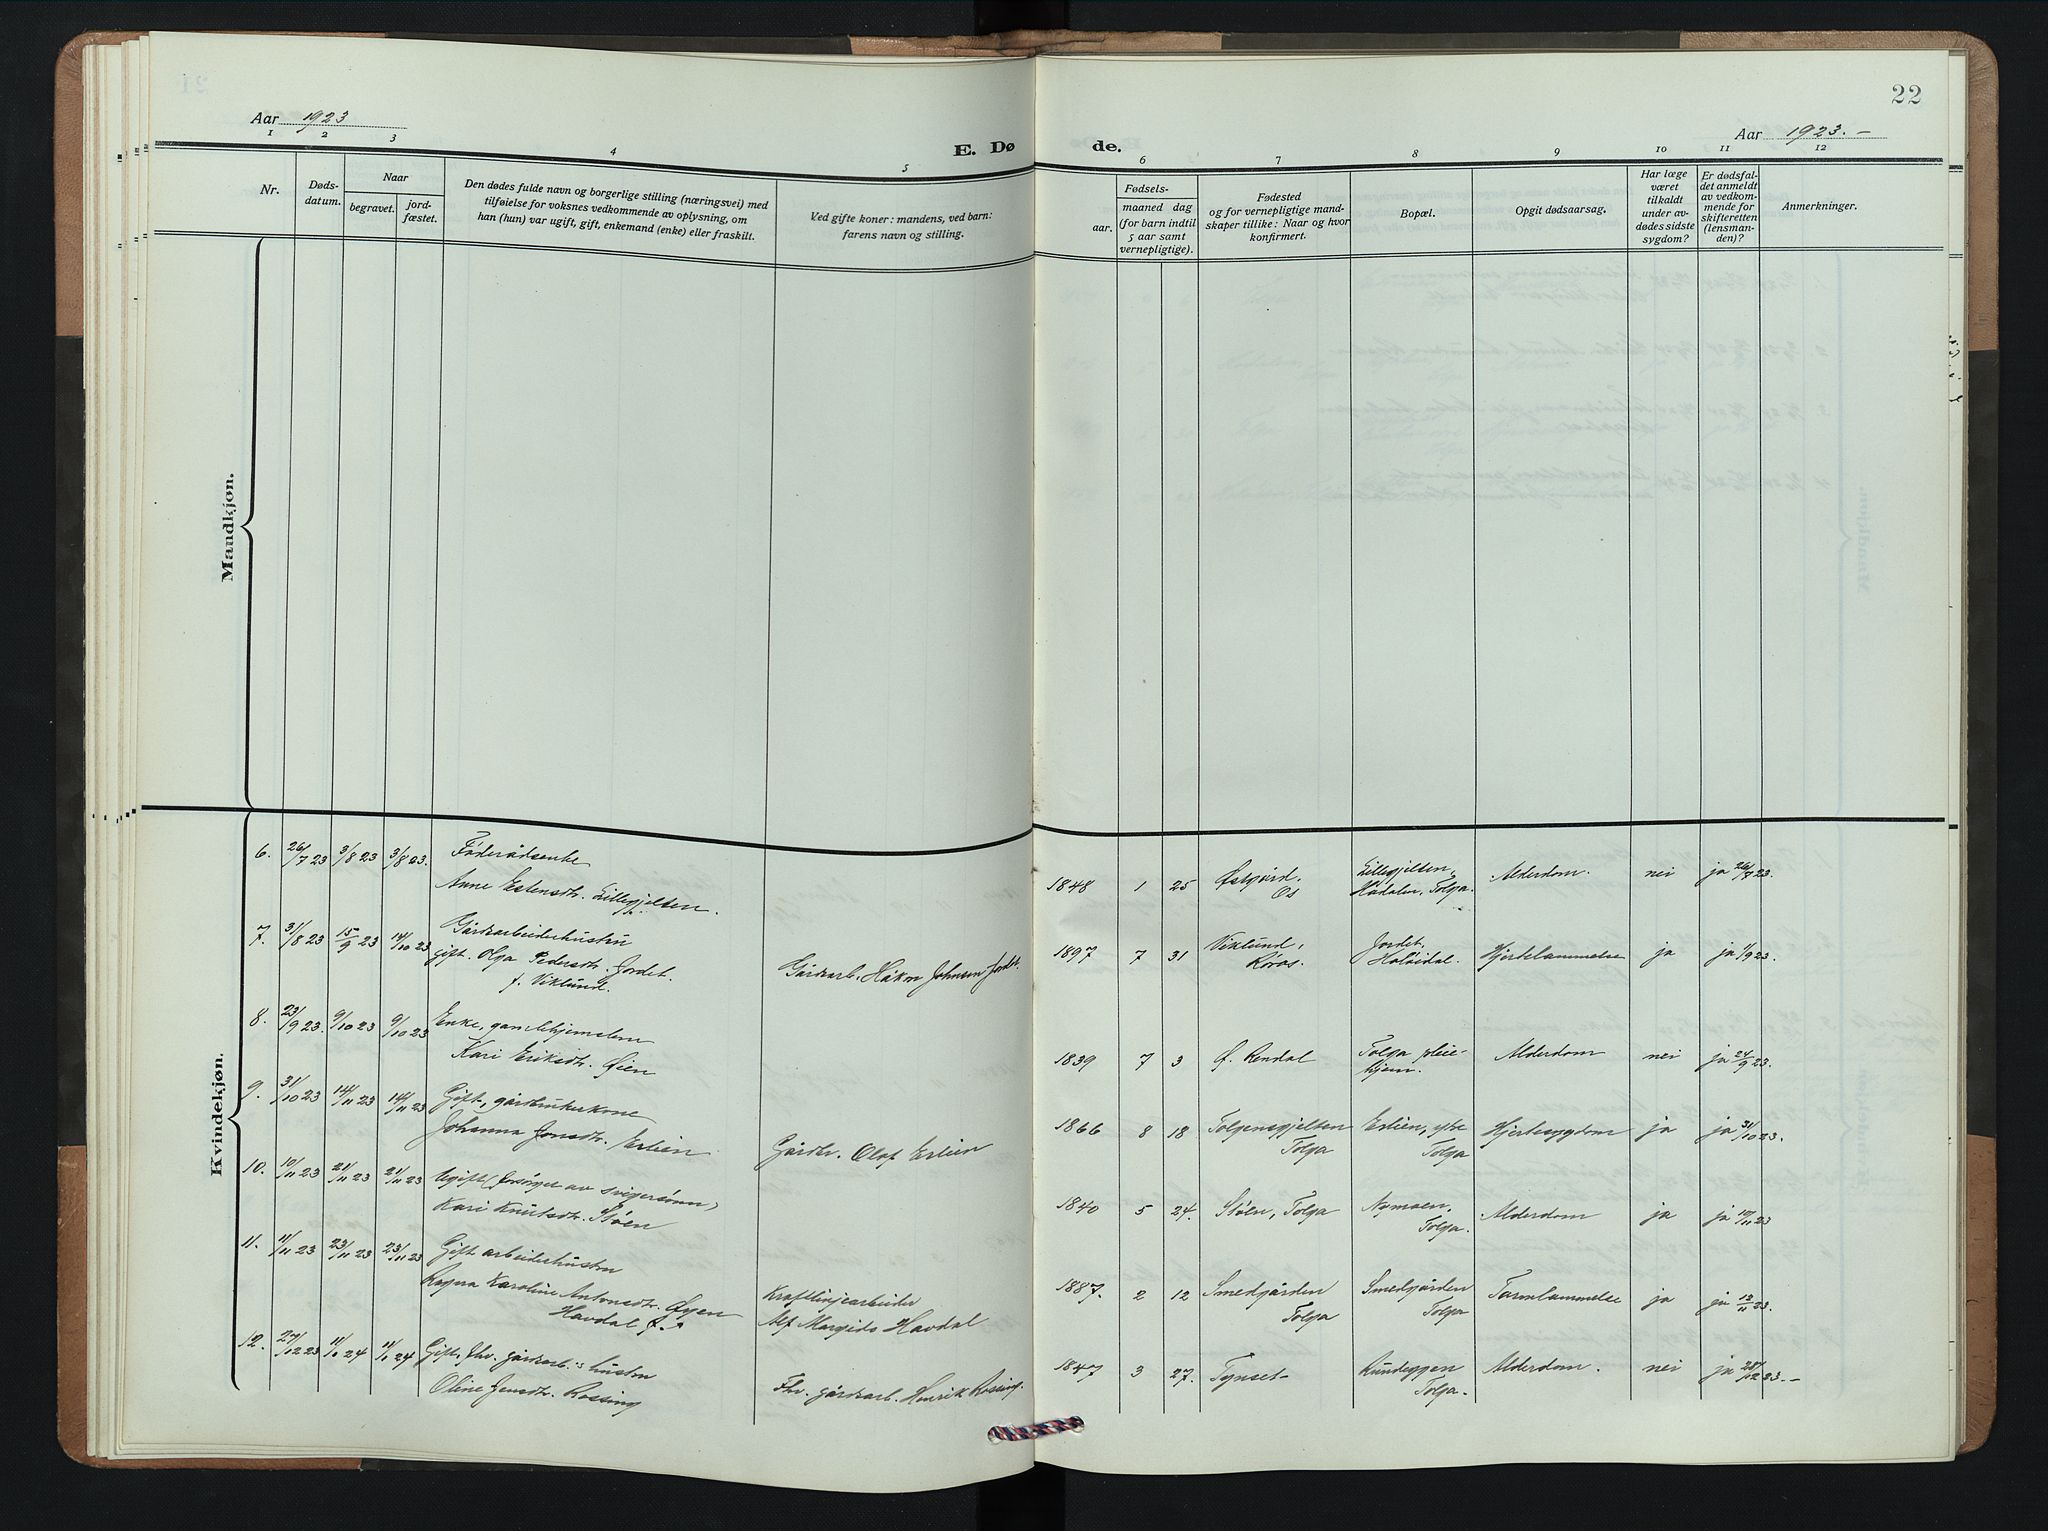 22
Aar 1923
Aar 1923.-
E. Døde.
1 2 3 4 5 6 7 8 9 10 11 12
Nr.
Dødsdatum.
Naar
begravet.
jordfæstet.
Den dødes fulde navn og borgerlige stilling (næringsvei) med
tilføielse for voksnes vedkommende av oplysning, om
han (hun) var ugift, gift, enkemand (enke) eller fraskilt.
Ved gifte koner: mandens, ved barn:
farens navn og stilling.
Fødsels-
aar.
maaned dag
(for barn indtil
5 aar samt
vernepligtige).
Fødested
og for vernepligtige mand-
skaper tillike: Naar og hvor
konfirmert.
Bopæl.
Opgit dødsaarsag.
Har læge
været
tilkaldt
under av-
dødes sidste
sygdom?
Er dødsfal-
det anmeldt
av vedkom-
mende for
skifteretten
(lensman-
den)?
Anmerkninger.
Mandkjøn.
Kvindekjøn.
6. 26/7 23 3/8 23 3/8 23. Føderådsenke
Anne Estensdtr. Lillegjelten.
1848 1 25 Østgård, Os Lillegjelten, Hådalen, Tolga. Alderdom. nei ja 26/7 23.
7. 31/8 23 15/9 23 14/10 23 Gårdsarbeiderhustru
gift. Olga Pedersdtr. Jordet.
f. Viklund.
Gårdsarb. Håkon Johnsen Jordet.
1897 7 31 Viklund, Røros. Jordet, Holøidal. Hjertelammelse ja ja 1/9 23.
8. 23/9 23. 9/10 23 9/10 23 Enke, gamlehjemslem
Kari Eriksdtr. Øien
1839 7 3 Ø. Rendal Tolga pleie-hjem. Alderdom nei ja 24/9 23.
9. 31/10 23 14/11 23 14/11 23 Gift, gårdbrukerkone
Johanna Jonsdtr. Erlien
Gårdbr. Olaf Erlien
1866 8 18 Tolgensgjelten Tolga Erlien, ytre Tolga Hjertesygdom ja ja 31/10 23.
10. 10/11 23 21/11 23 21/11 23 Ugift (forsørget av svigersønn)
Kari Knutsdtr. Støen
1840 5 24. Støen, Tolga Nymoen, Tolga. Alderdom ja ja 10/11 23
11. 11/11 23 23/11 23 23/11 23 Gift arbeiderhustru
Ragna Karoline Antonsdtr. Øyen
Havdal f.
Kraftlinjearbeider
Alf Margido Havdal
1887. 2 12 Smedgården Tolga Smedgården Tolga Tarmlammelse ja ja 12/11 23.
12. 27/12 23 11/1 24 11/1 24 Gift, fhv. gårdsarb.s hustru
Oline Jensdtr. Røssing
Fhv. gårdsarb. Henrik Røssing.
1847 3 27. Tynset Rundeggen Tolga. Alderdom. nei ja 28/12 23.-